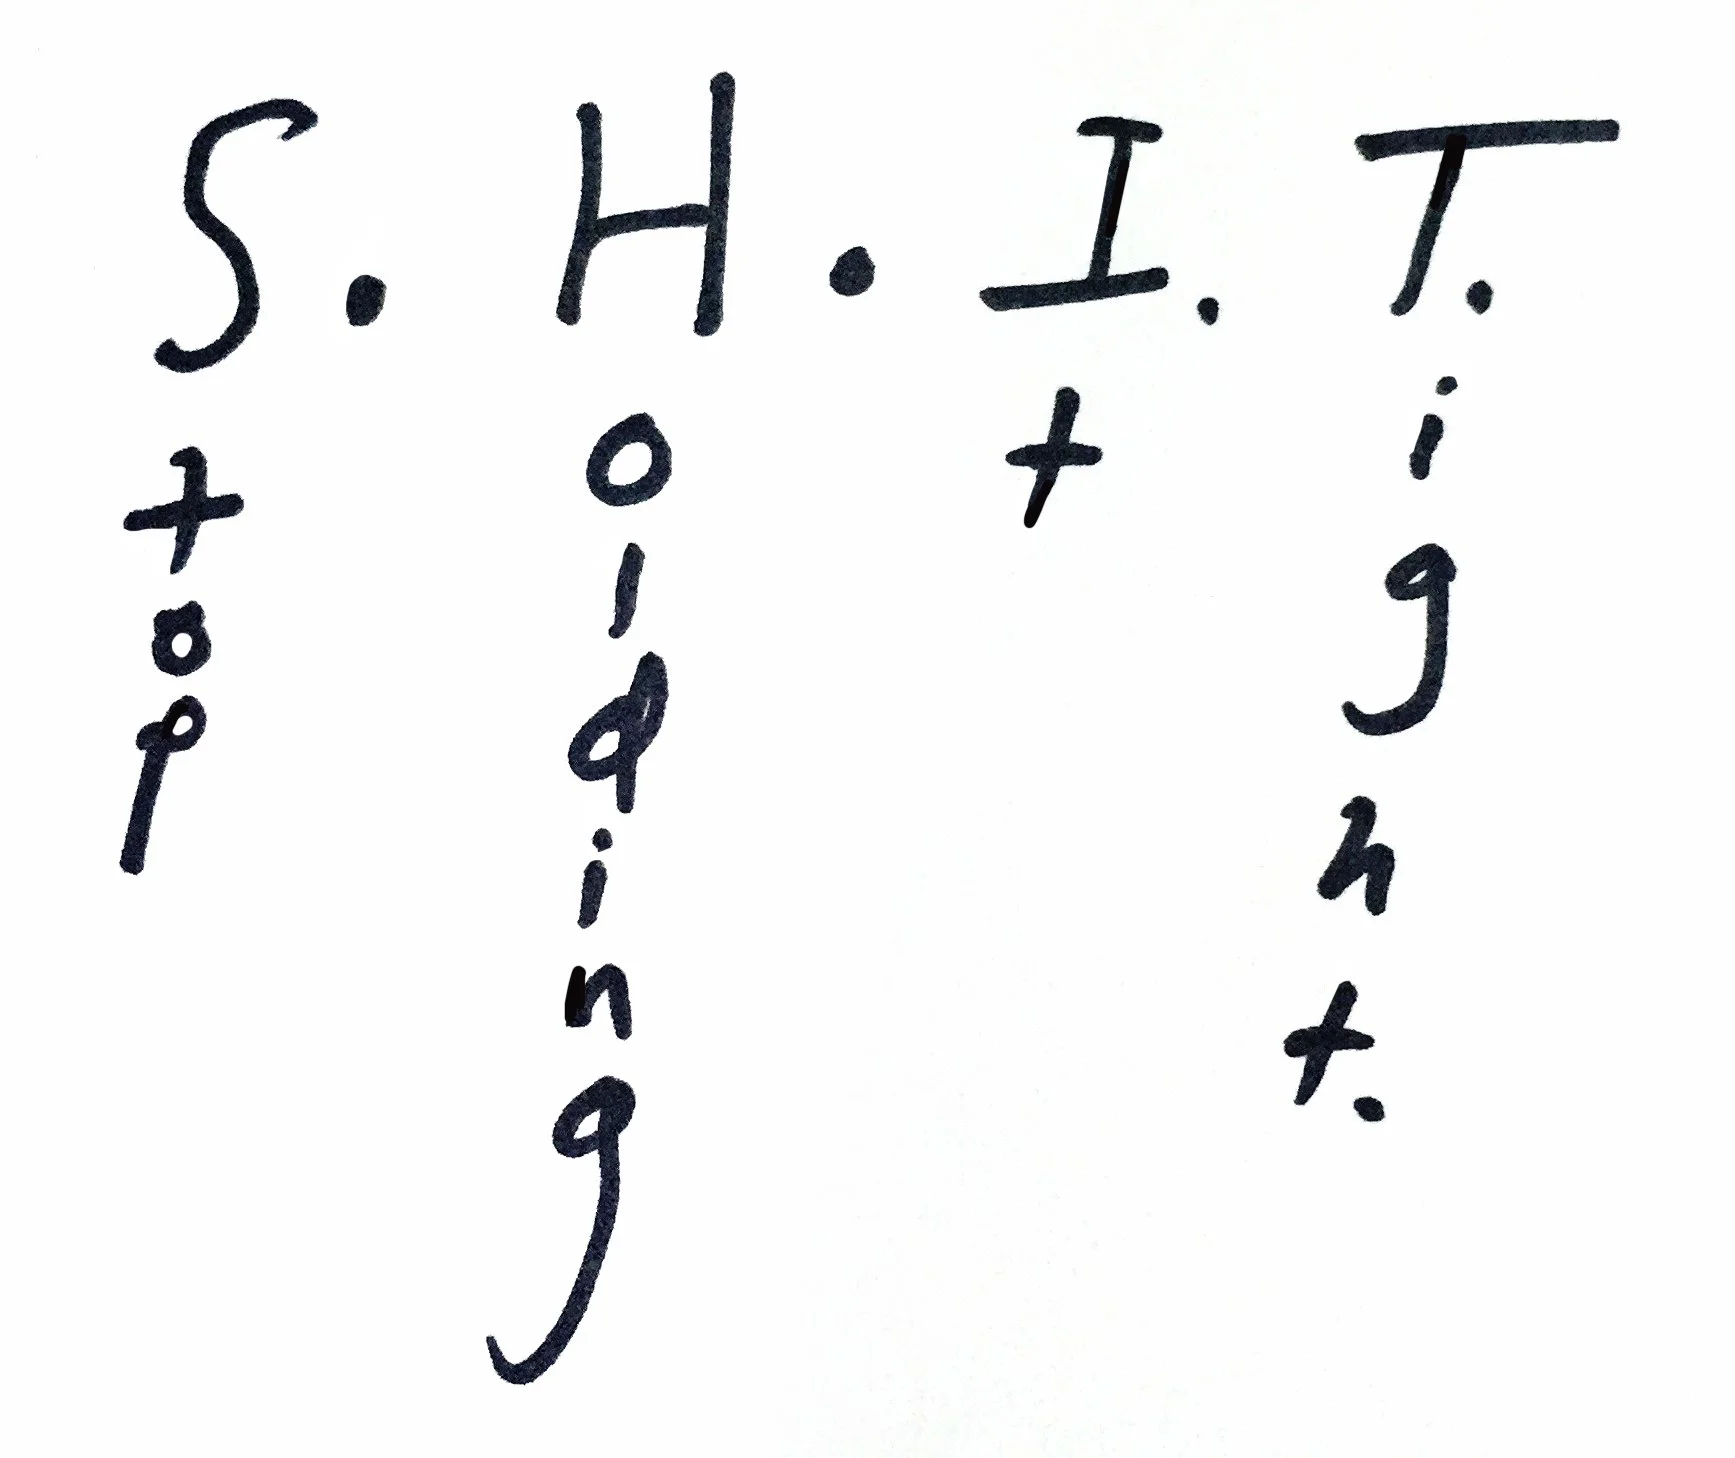 S. H. I. T.
Stop
Holding
It
Tight.